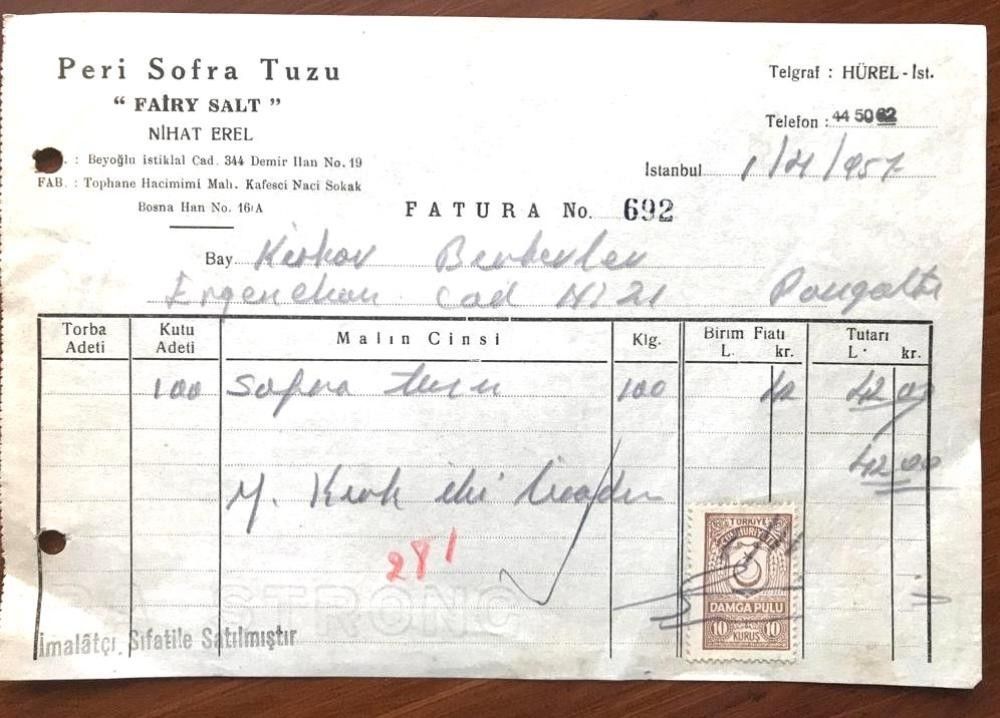 Peri Sofra Tuzu
“ FAİRY SALT ”
NİHAT EREL
: Beyoğlu istiklal Cad. 344 Demir Han No. 19
FAB. : Tophane Hacimimi Mah. Kafesci Naci Sokak
Bosna Han No. 16/A
Telgraf : HÜREL - İst.
Telefon : 44 50 62
İstanbul 1/4/957
FATURA No. 692
Bay Kirkor
Ergenekon Cad No 21 Pangaltı
Torba Adeti
Kutu Adeti
Malın Cinsi
Klg.
Birim Fiatı
L. kr.
Tutarı
L. kr.
100 Sofra tuzu 100 42 42 00
42 00
Y. Kırk iki liradır
281
TÜRKİYE
CUMHURİYETİ
DAMGA PULU
10 KURUŞ 10
STRONG
İmalâtçı Sıfatile Satılmıştır